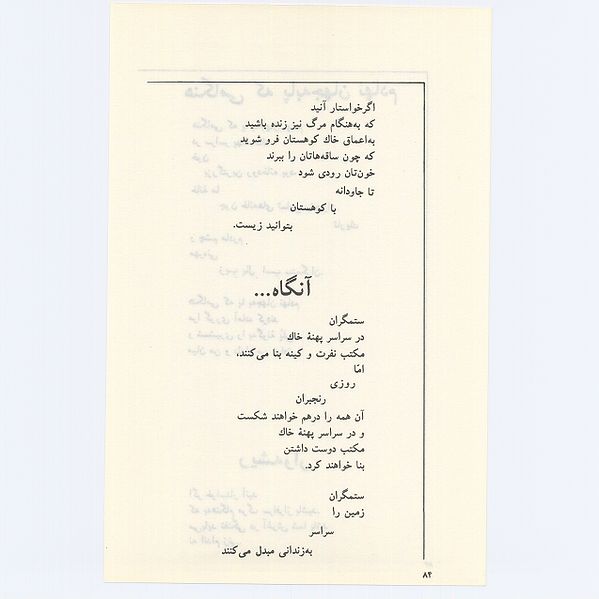 اگر خواستار آنید
که به‌هنگام مرگ نیز زنده باشید
به‌اعماق خاك کوهستان فرو شوید
که چون ساقه‌هاتان را ببرند
خون‌تان رودی شود
تا جاودانه
با کوهستان
بتوانید زیست.
آنگاه...
ستمگران
در سراسر پهنهٔ خاك
مکتب نفرت و کینه بنا می‌کنند،
امّا
روزی
رنجبران
آن همه را درهم خواهند شکست
و در سراسر پهنهٔ خاك
مکتب دوست داشتن
بنا خواهند کرد.
ستمگران
زمین را
سراسر
به‌زندانی مبدل می‌کنند
۸۴